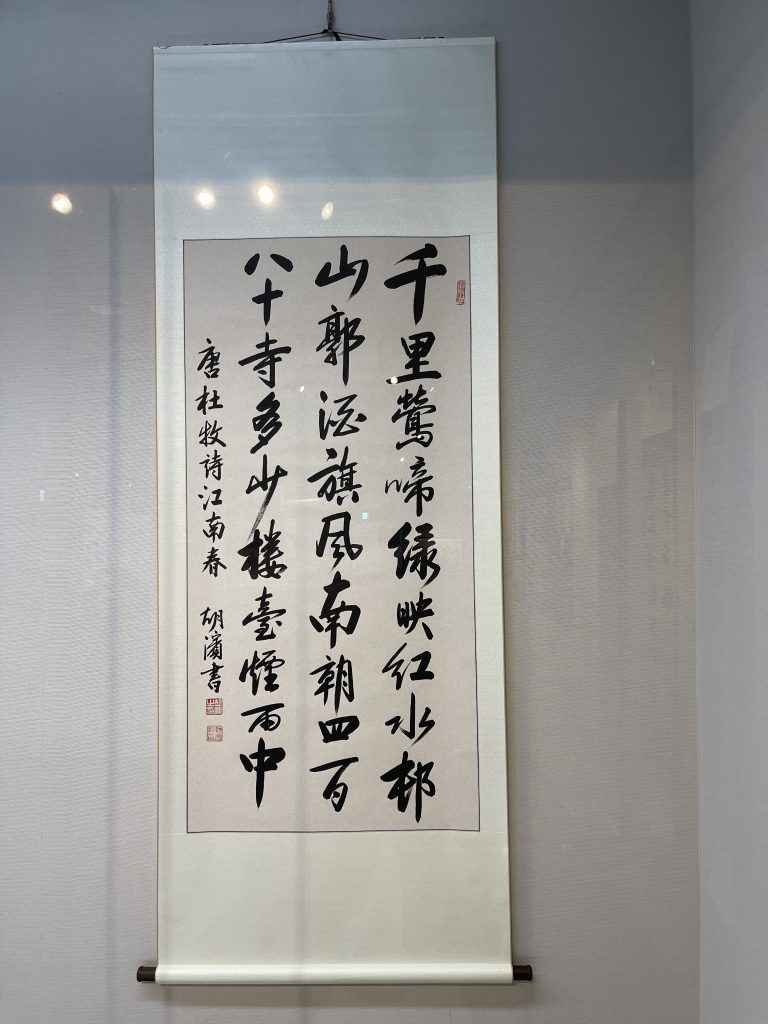 千里莺啼绿映红水邨
山郭酒旗风南朝四百
八十寺多少楼臺煙雨中
唐杜牧詩江南春 胡濱書